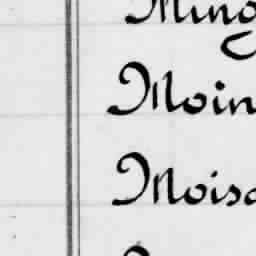 Ming
Moin
Moisa